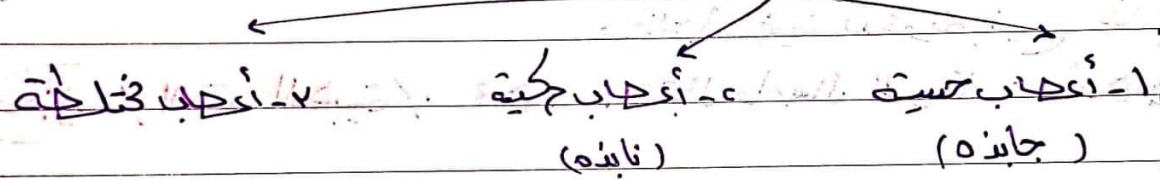 ١- أعصاب حسية ٢- أعصاب حركية ٣- أعصاب مختلطة
(جابذه) (نابذه)